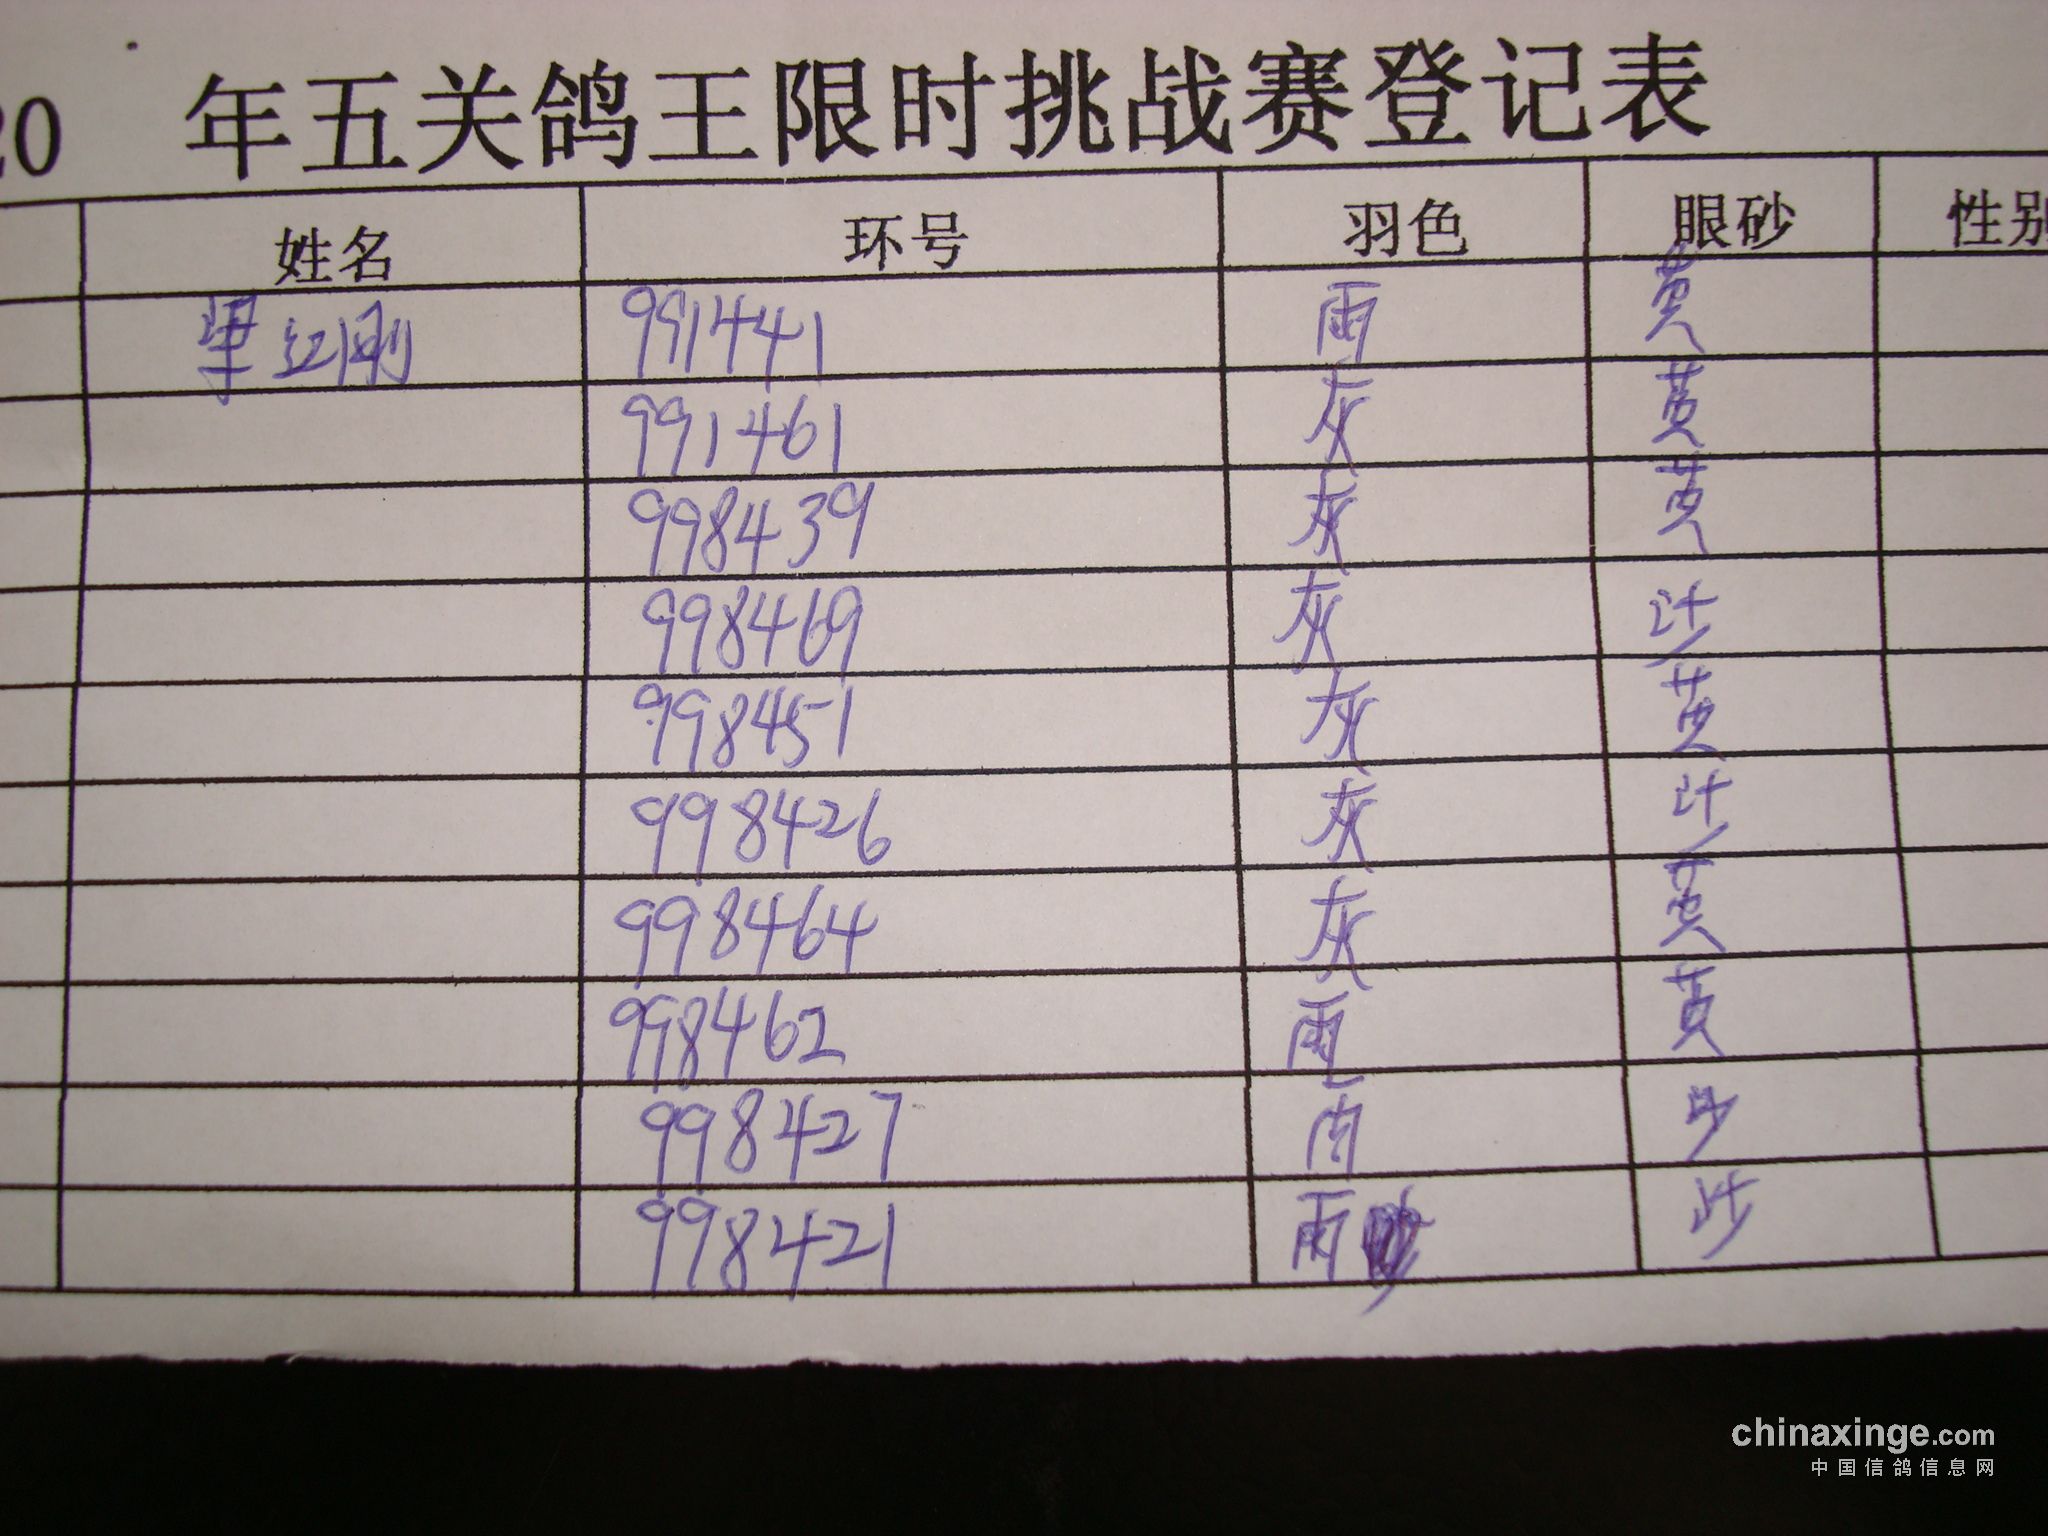 20 年五关鸽王限时挑战赛登记表
姓名 环号 羽色 眼砂 性别
梁红刚 991441 雨 黄
991461 灰 黄
998439 灰 黄
998469 灰
998451 灰 黄
998426 灰
998464 灰 黄
998462 雨 黄
998427 雨
998421 雨
chinaxinge.com
中国信鸽信息网